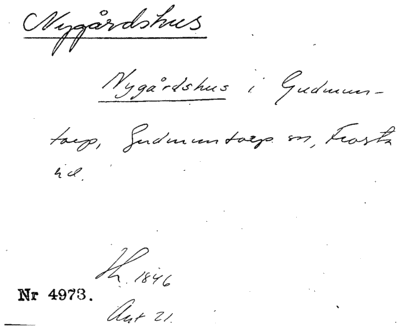 Nygårdshus
Nygårdshus i Gudmun-
torp, Gudmuntorp sn, Frosta
hd.
Hr. 1846
Nr 4973.
Ant 21.